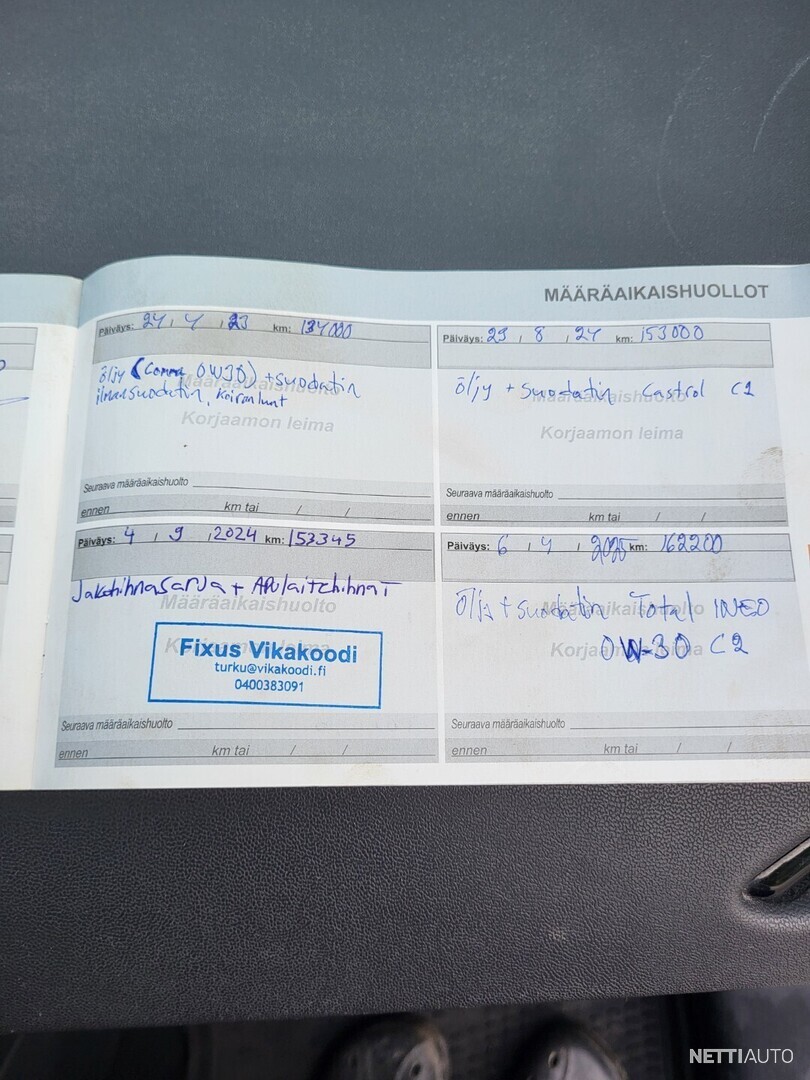 MÄÄRÄAIKAISHUOLLOT
Päiväys: 24 , 4 , 23 km: 134000
öljy (Comma 0W30) + suodatin
ilmansuodatin, Koiranluut
Määräaikaishuolto
Korjaamon leima
Seuraava määräaikaishuolto
ennen km tai / /
Päiväys: 29 , 8 , 24 km: 153000
Öljy + Suodatin Castrol C2
Määräaikaishuolto
Korjaamon leima
Seuraava määräaikaishuolto
ennen km tai / /
Päiväys: 4 , 9 , 2024 km: 153345
Jakohihnasarja + Apulaitehihnat
Määräaikaishuolto
Fixus Vikakoodi
turku@vikakoodi.fi
0400383091
Seuraava määräaikaishuolto
ennen km tai / /
Päiväys: 6 , 4 , 2025 km: 162200
Öljy + suodatin Total INEO
Määräaikaishuolto
0W-30 C2
Korjaamon leima
Seuraava määräaikaishuolto
ennen km tai / /
NETTIAUTO